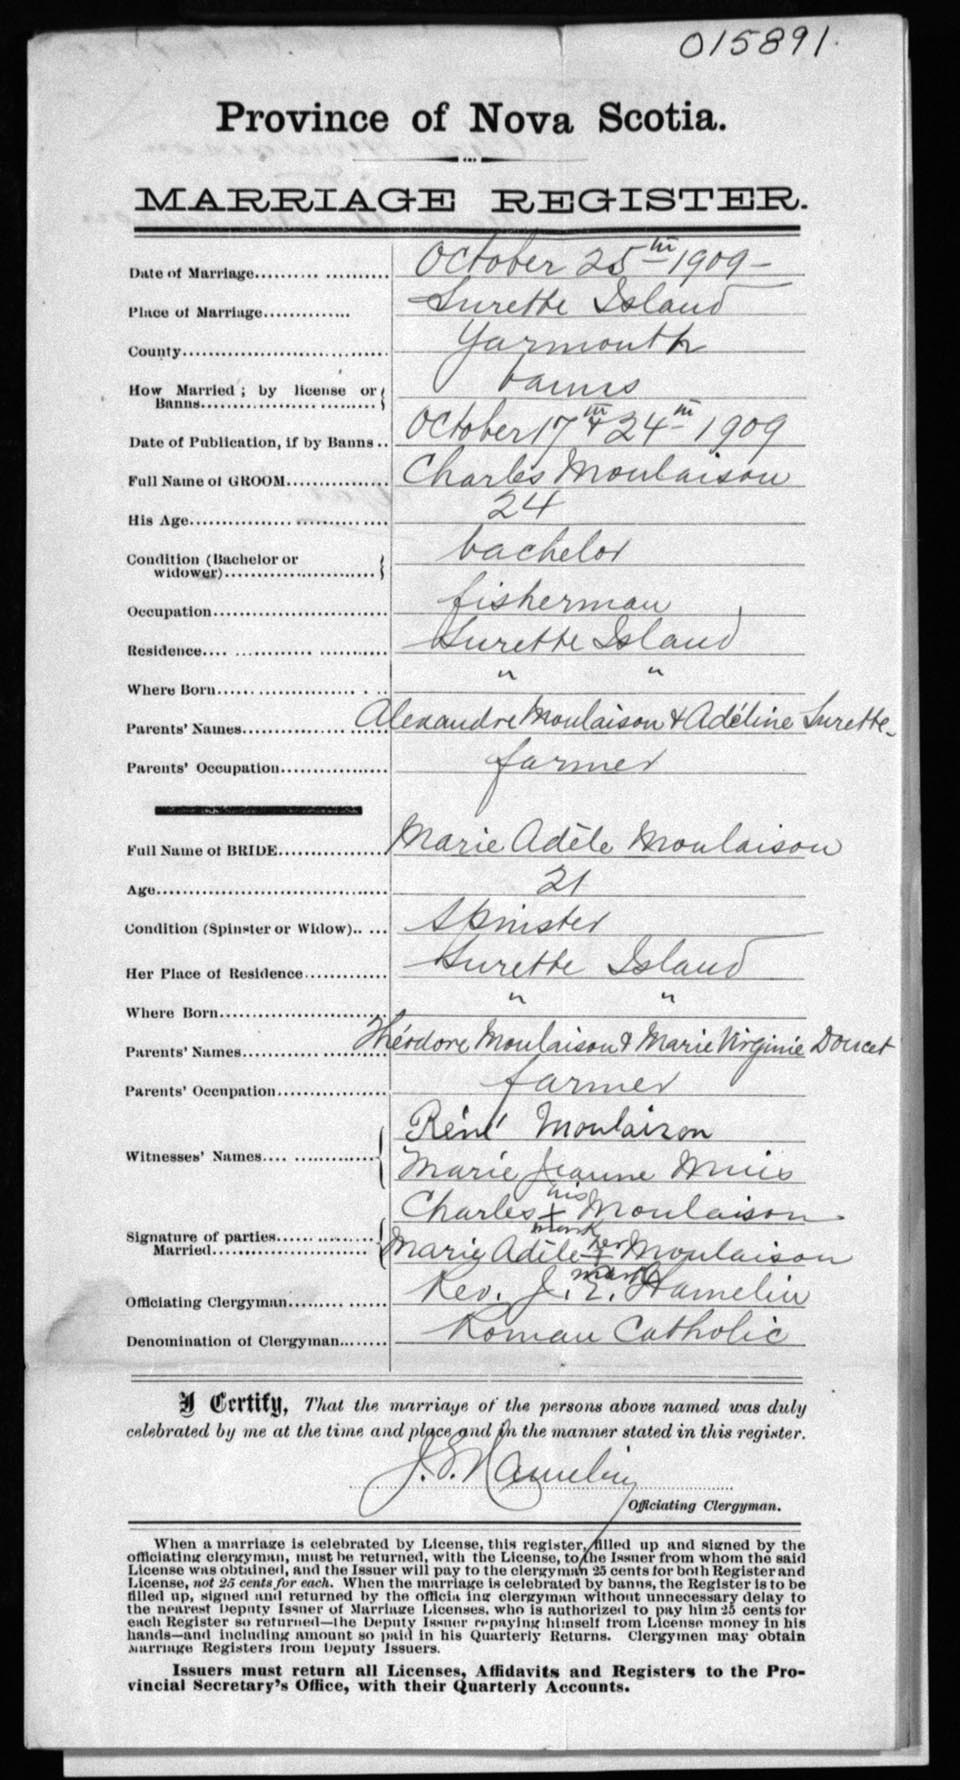 015891.
Province of Nova Scotia.
MARRIAGE REGISTER.
Date of Marriage.................... October 25th 1909 -
Place of Marriage.............. Surette Island
County................................... Yarmouth
How Married; by license or banns
Banns.............................
Date of Publication, if by Banns.. October 17th & 24th 1909
Full Name of GROOM............... Charles Moulaison
His Age.............................. 24
Condition (Bachelor or bachelor
widower)..........................
Occupation............................ fisherman
Residence.... ............................ Surette Island
Where Born............................ " "
Parents' Names........................ Alexandre Moulaison & Adéline Surette -
Parents' Occupation................. farmer
Full Name of BRIDE................. Marie Adèle Moulaison
Age..................................... 21
Condition (Spinster or Widow).. ... Spinster
Her Place of Residence............. Surette Island
Where Born............................ " "
Parents' Names........................ Théodore Moulaison & Marie Virginie Doucet
Parents' Occupation................. farmer
Réné Moulaison
Witnesses' Names.... ..............
Marie Jeanne Muis
Charles his x mark Moulaison
Signature of parties..................
Married............................ Marie Adèle her x mark Moulaison
Officiating Clergyman............... Rev. J. E. Hamelin
Denomination of Clergyman....... Roman Catholic
I Certify, That the marriage of the persons above named was duly
celebrated by me at the time and place and in the manner stated in this register.
J. E. Hamelin
Officiating Clergyman.
When a marriage is celebrated by License, this register, filled up and signed by the
officiating clergyman, must be returned, with the License, to the Issuer from whom the said
License was obtained, and the Issuer will pay to the clergyman 25 cents for both Register and
License, not 25 cents for each. When the marriage is celebrated by banns, the Register is to be
filled up, signed and returned by the officia ing clergyman without unnecessary delay to
the nearest Deputy Issuer of Marriage Licenses, who is authorized to pay him 25 cents for
each Register so returned—the Deputy Issuer repaying himself from License money in his
hands—and including amount so paid in his Quarterly Returns. Clergymen may obtain
Marriage Registers from Deputy Issuers.
Issuers must return all Licenses, Affidavits and Registers to the Pro-
vincial Secretary's Office, with their Quarterly Accounts.